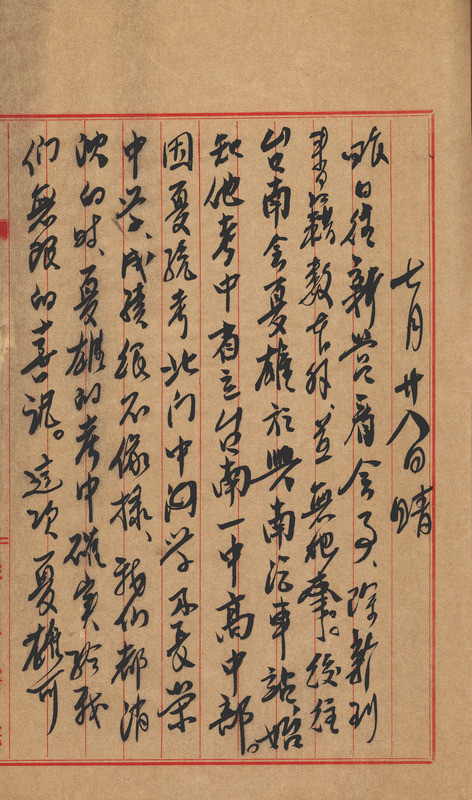 七月廿八日晴
昨日往新營看會了、除新刊
書籍數本外、並無他事。後往
台南會夏雄於興南汽車站、始
知他考中省立台南一中高中部。
因夏統考北門中同学及長榮
中学、成績很不像樣、我们都消
沈的时、夏雄的考中確実給我
们無限的喜訊。這次夏雄可